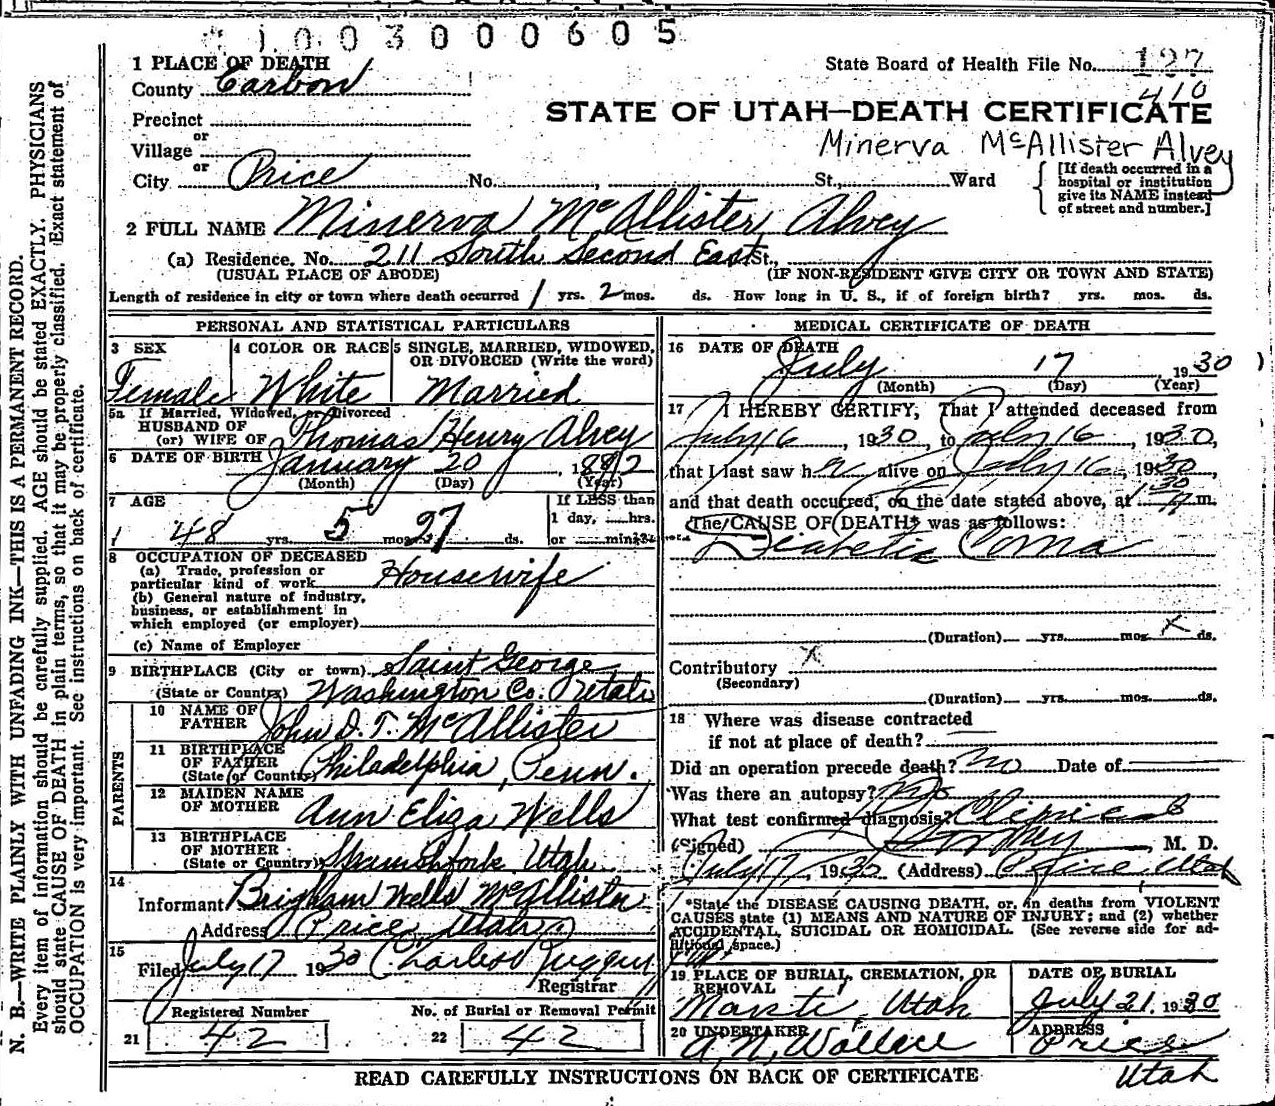 1003000605
1 PLACE OF DEATH
State Board of Health File No. 127
410
County Carbon
STATE OF UTAH—DEATH CERTIFICATE
Precinct
or
Village
Minerva McAllister Alvey
or
City Price No. , St., Ward
[If death occurred in a
hospital or institution
give its NAME instead
of street and number.]
2 FULL NAME Minerva McAllister Alvey
(a) Residence. No. 211 South Second East St.,
(USUAL PLACE OF ABODE) (IF NON-RESIDENT GIVE CITY OR TOWN AND STATE)
Length of residence in city or town where death occurred 1 yrs. 2 mos. ds. How long in U. S., if of foreign birth? yrs. mos. ds.
PERSONAL AND STATISTICAL PARTICULARS
3 SEX 4 COLOR OR RACE 5 SINGLE, MARRIED, WIDOWED,
OR DIVORCED (Write the word)
Female White Married
5a If Married, Widowed, or Divorced
HUSBAND OF
(or) WIFE OF Thomas Henry Alvey
6 DATE OF BIRTH January 20, 1882
(Month) (Day) (Year)
7 AGE If LESS than
1 day, hrs.
48 yrs. 5 mos. 27 ds. or min.
8 OCCUPATION OF DECEASED
(a) Trade, profession or
particular kind of work Housewife
(b) General nature of industry,
business, or establishment in
which employed (or employer)
(c) Name of Employer
9 BIRTHPLACE (City or town) Saint George
(State or Country) Washington Co. Utah
PARENTS
10 NAME OF
FATHER John D. T. McAllister
11 BIRTHPLACE
OF FATHER
(State or Country) Philadelphia, Penn.
12 MAIDEN NAME
OF MOTHER Ann Eliza Wells
13 BIRTHPLACE
OF MOTHER
(State or Country) Spanish Fork Utah
14
Informant Brigham Wells McAllister
Address Price Utah
15
Filed July 17 1930
Registrar
Registered Number No. of Burial or Removal Permit
21 42 22 42
MEDICAL CERTIFICATE OF DEATH
16 DATE OF DEATH
July 17, 1930
(Month) (Day) (Year)
17 I HEREBY CERTIFY, That I attended deceased from
July 16, 1930, to July 16, 1930,
that I last saw her alive on July 16, 1930,
and that death occurred, on the date stated above, at 1 30 m.
The CAUSE OF DEATH* was as follows:
Diabetic Coma
(Duration) yrs. mos. X ds.
Contributory X
(Secondary)
(Duration) yrs. mos. ds.
18 Where was disease contracted
if not at place of death?
Did an operation precede death? no Date of
Was there an autopsy? no
What test confirmed diagnosis? Clinical
(Signed) , M. D.
July 17, 1930 (Address) Price, Utah
*State the DISEASE CAUSING DEATH, or, in deaths from VIOLENT
CAUSES state (1) MEANS AND NATURE OF INJURY; and (2) whether
ACCIDENTAL, SUICIDAL OR HOMICIDAL. (See reverse side for ad-
ditional space.)
19 PLACE OF BURIAL, CREMATION, OR
REMOVAL
DATE OF BURIAL
Manti, Utah July 21, 1930
20 UNDERTAKER ADDRESS
A. N. Wallace Price
Utah
READ CAREFULLY INSTRUCTIONS ON BACK OF CERTIFICATE
N. B.—WRITE PLAINLY WITH UNFADING INK—THIS IS A PERMANENT RECORD.
Every item of information should be carefully supplied. AGE should be stated EXACTLY. PHYSICIANS
should state CAUSE OF DEATH in plain terms, so that it may be properly classified. Exact statement of
OCCUPATION is very important. See instructions on back of certificate.